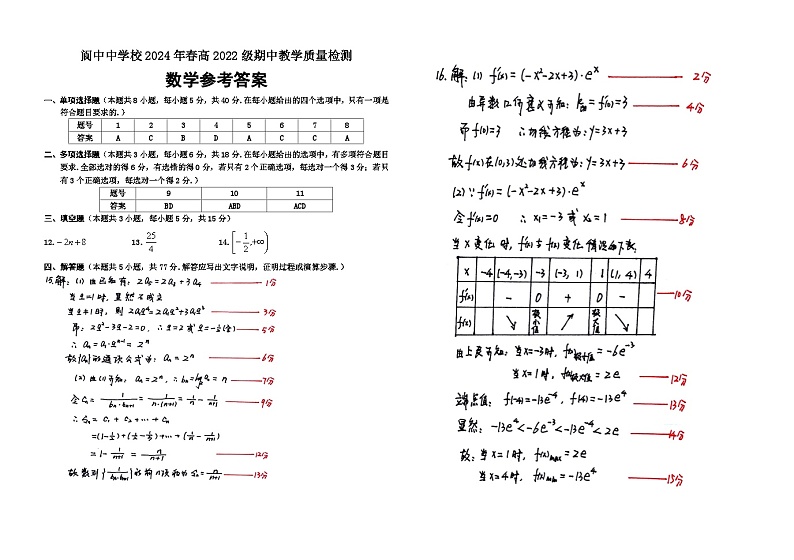 阆中中学校 2024 年春高 2022 级期中教学质量检测
数学参考答案
一、单项选择题（本题共 8 小题，每小题 5 分，共 40 分.在每小题给出的四个选项中，只有一项是
符合题目要求的.）
题号 1 2 3 4 5 6 7 8
答案 A C B D A C C A
二、多项选择题（本题共 3 小题，每小题 6 分，共 18 分.在每小题给出的选项中，有多项符合题目
要求.全部选对的得 6 分，有选错的得 0 分，若只有 2 个正确选项，每选对一个得 3 分；若只
有 3 个正确选项，每选对一个得 2 分.）
题号 9 10 11
答案 BD ABD ACD
三、填空题（本题共 3 小题，每小题 5 分，共 15 分）
12. −2n+8 13. 25/4 14. [−1/2,+∞)
四、解答题（本题共 5 小题，共 77 分.解答应写出文字说明，证明过程或演算步骤.）
15.解：(1) 由已知有：2a₅=2a₄+3a₄ 1分
当q=1时，显然不成立
3分
即：2q²-3q-2=0，∴q=2或q=-1/2(舍) 5分
∴aₙ=a₁·qⁿ⁻¹=2ⁿ
故{aₙ}的通项公式为：aₙ=2ⁿ 6分
(2) 由(1)可知，aₙ=2ⁿ，∴bₙ=log₂aₙ=n 7分
令Cₙ=1/(bₙ·bₙ₊₁)=1/(n·(n+1))=1/n-1/(n+1) 9分
∴Sₙ=C₁+C₂+…+Cₙ
=(1-1/2)+(1/2-1/3)+…+(1/n-1/(n+1))
=1-1/(n+1)=n/(n+1) 12分
故数列{1/(bₙ·bₙ₊₁)}的前n项和为Sₙ=n/(n+1) 13分
16.解：(1) f'(x)=(-x²-2x+3)·eˣ 2分
由导数几何意义可知：k切=f'(0)=3 4分
而f(0)=3 ∴切线方程为：y=3x+3
故f(x)在(0,3)处切线方程为：y=3x+3 6分
(2)∵f'(x)=(-x²-2x+3)·eˣ
令f'(x)=0 ∴x₁=-3或x₂=1 8分
当x变化时，f'(x)与f(x)变化情况如下表：
x -4 (-4,-3) -3 (-3,1) 1 (1,4) 4
f'(x) − 0 + 0 −
f(x) ↘ 极小值 ↗ 极大值 ↘
10分
由上表可知：当x=-3时，f(x)极小值=-6e⁻³
当x=1时，f(x)极大值=2e 12分
端点值：f(-4)=-13e⁻⁴，f(4)=-13e⁴ 13分
显然：-13e⁴<-6e⁻³<-13e⁻⁴<2e 14分
故：当x=1时，f(x)max=2e
当x=4时，f(x)min=-13e⁴ 15分